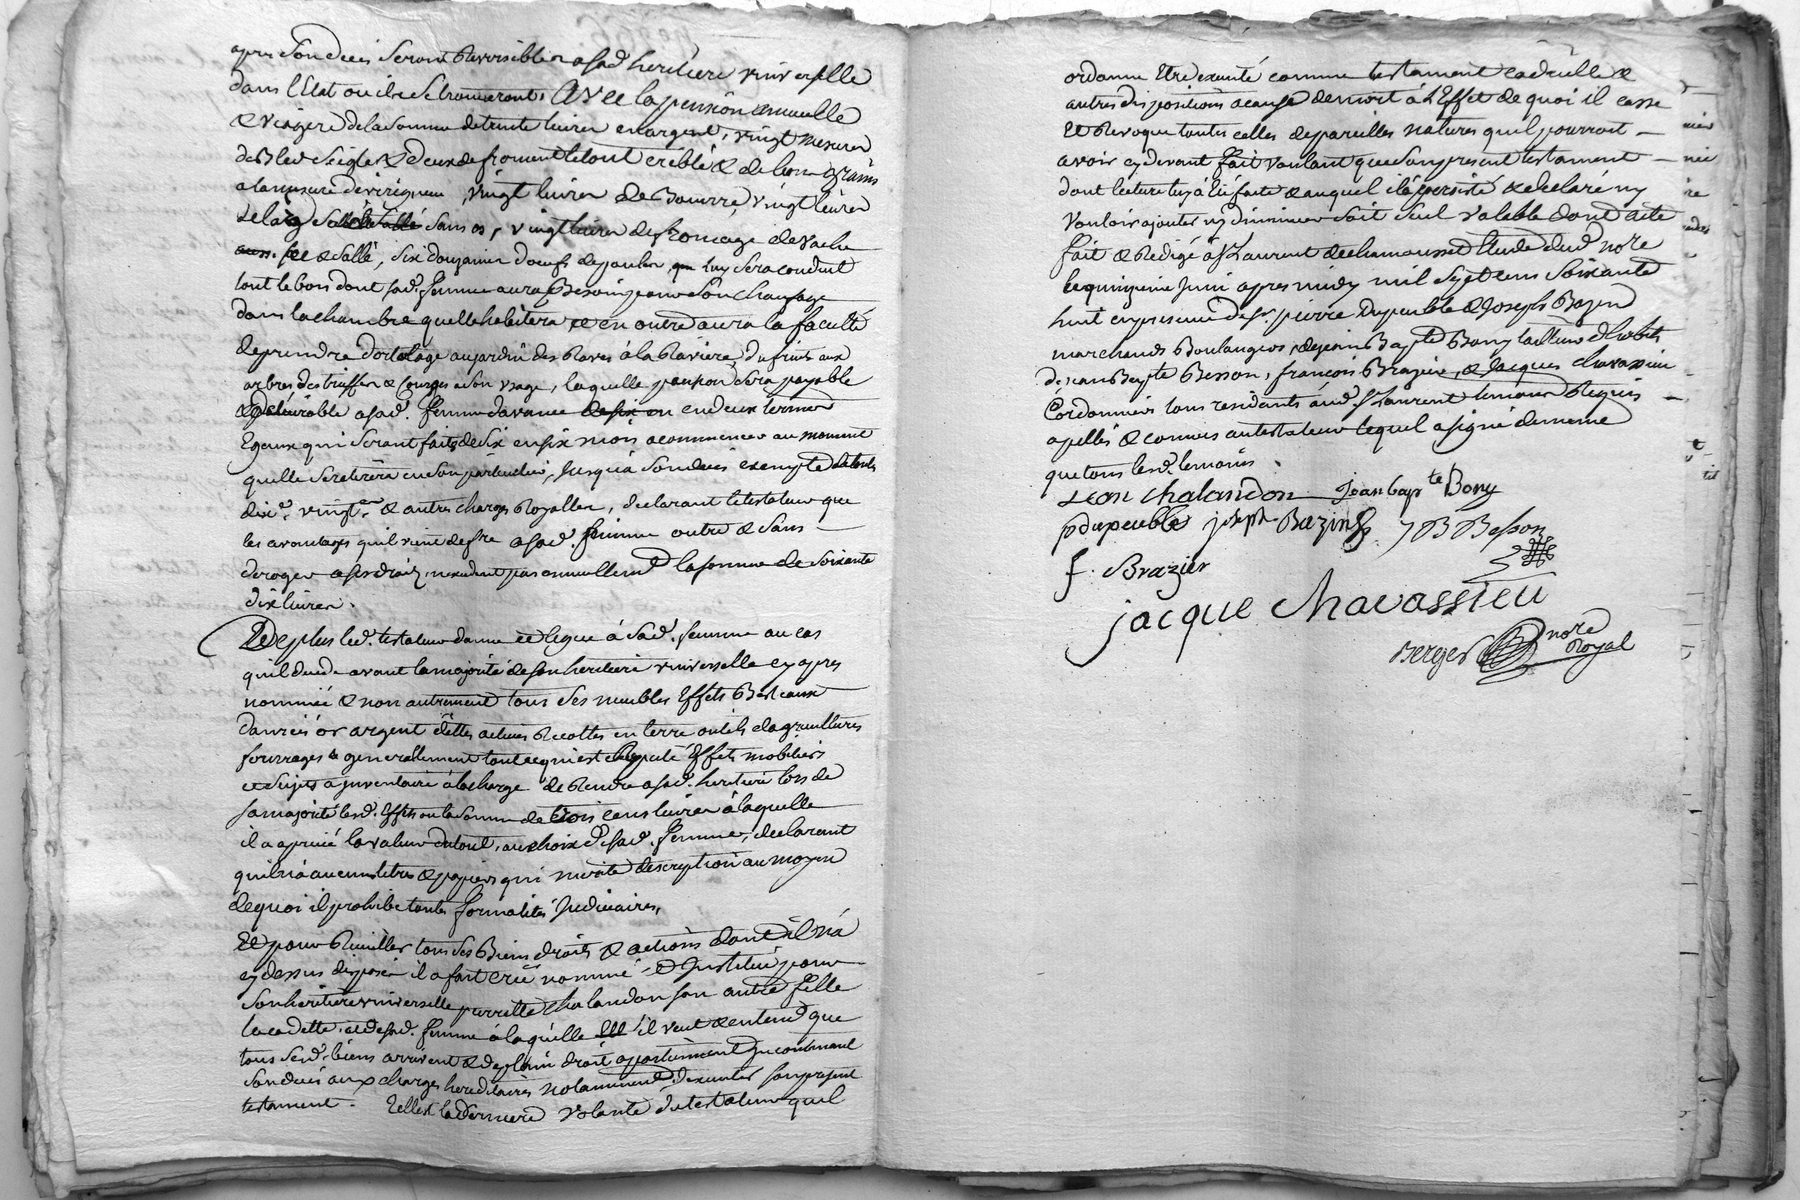 apres son deces seront reversibles a sad. heritiere universelle
dans l'Etat ou ils se trouveront. Avec la pension annuelle
& viagere de la somme de trente livres en argent, vingt mesures
de bled seigle & deux de froment le tout criblé & de bons grains
a la mesure de virigneu, vingt livres de Beurre, vingt livres
de lard sallé sans os, vingt livres de fromage de vache
sec & sallé, six douzaines d'oeufs de poules, luy sera conduit
tout le bois dont sad. femme aura Besoin pour son chaufage
dans la chambre quelle habitera et en outre aura la faculté
de prendre d'ortolage au jardin des Raves à la Raviere, du fruit aux
arbres des truffes & Courges a son usage, laquelle pension sera payable
& delivrable a sad. femme d'avance en deux termes
Egaux qui seront faits de six en six mois a commencer au moment
quelle se retirera en son particulier, jusqu'à son deces exempte de touts
dixe. vingte. & autres charges Royalles, declarant le testateur que
les avantages quil vient de fre a sad. femme outre & sans
deroger a ses droits, n'excedent pas annuellement la somme de soixante
dix livres.
De plus led. testateur donne et legue à sad. femme au cas
quil decede avant la majorité de son heritiere universelle cy apres
nommée & non autrement tous ses meubles Effets Bestiaux
danrées or argent dettes actives Recoltes en terre outils d'agricultures
fourrages & generallement tout ce qui est Reputé Effets mobiliers
et sujets a inventaire à la charge de Rendre a sad. heritiere lors de
sa majorité lesd. Effets ou la somme de trois cens livres à laquelle
il a aprecié la valeur du tout, au choix de sad. femme, declarant
quil n'a aucuns titres & papiers qui merite description au moyen
de quoi il prohibe toutes formalités Judiciaires,
Et pour Recueillir tous ses Biens droits & actions dont il n'a
cy dessus disposé il a fait crée nommé & Institué pour
son heritiere universelle pierrette chalandon son autre fille
la cadette, et de sad. femme à laquelle il veut & entend que
tous sesd. biens arrivent & de plain droit apartiennent Incontinent
son deces aux charges hereditaires notamment d'executer son present
testament. Telle est la derniere volonté du testateur quil
ordonne Etre executé comme testament codicille &
autres dispositions a cause de mort à L'Effet de quoi il casse
Et Revoque toutes celles de pareilles natures quil pourroit
avoir cy devant fait voulant que son present testament
dont lecture luy à Eté faite & auquel il à persisté & declaré ny
vouloir ajouter ny diminuer soit seul valable dont acte
fait & Redigé à St Laurent de chamousset Etude dud. nore
le quinzieme Juin apres midy mil sept cens soixante
huit en presence de sr. pierre Dupeuble & Joseph Bazin
marchands Boulangers, de jean Bapte Bony tailleur d'habits
de jean Bapte Besson, françois Brazier, & Jacques chavassieu
Cordonniers tous residents aud. St Laurent temoins Requis
apellés & connus au testateur lequel a signé de meme
que tous lesd. temoins.
Léon chalandon Jean bapte Bony
pdupeuble joseph Bazin JB Besson
f. Brazier
jacque chavassieu
Berger nore
Royal